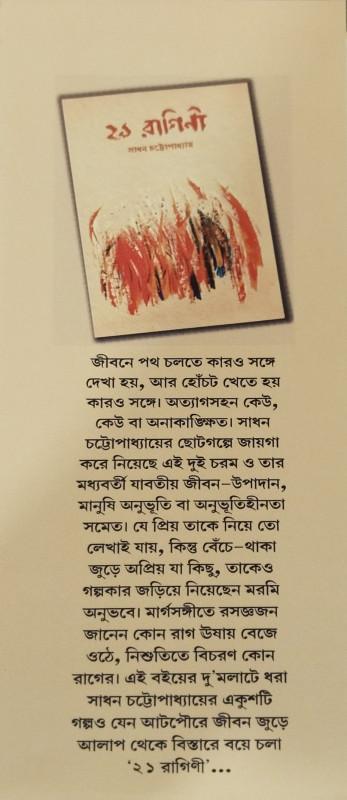 ২১ রাগিণী
সাধন চট্টোপাধ্যায়
জীবনে পথ চলতে কারও সঙ্গে
দেখা হয়, আর হোঁচট খেতে হয়
কারও সঙ্গে। অত্যাগসহন কেউ,
কেউ বা অনাকাঙ্ক্ষিত। সাধন
চট্টোপাধ্যায়ের ছোটগল্পে জায়গা
করে নিয়েছে এই দুই চরম ও তার
মধ্যবর্তী যাবতীয় জীবন-উপাদান,
মানুষি অনুভূতি বা অনুভূতিহীনতা
সমেত। যে প্রিয় তাকে নিয়ে তো
লেখাই যায়, কিন্তু বেঁচে-থাকা
জুড়ে অপ্রিয় যা কিছু, তাকেও
গল্পকার জড়িয়ে নিয়েছেন মরমি
অনুভবে। মার্গসঙ্গীতে রসজ্ঞজন
জানেন কোন রাগ উষায় বেজে
ওঠে, নিশুতিতে বিচরণ কোন
রাগের। এই বইয়ের দু'মলাটে ধরা
সাধন চট্টোপাধ্যায়ের একুশটি
গল্পও যেন আটপৌরে জীবন জুড়ে
আলাপ থেকে বিস্তারে বয়ে চলা
‘২১ রাগিণী’...